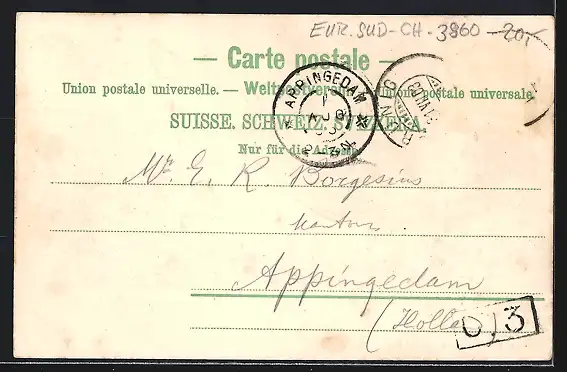 EUR. SUD-CH-3860-20,-
— Carte postale —
Union postale universelle. — Weltpostverein. — Unione postale universale.
SUISSE. SCHWEIZ. SVIZZERA.
Nur für die Adresse.
APPINGEDAM
Mr. E. R. Borgesius
Appingedam
(Holland
D/3